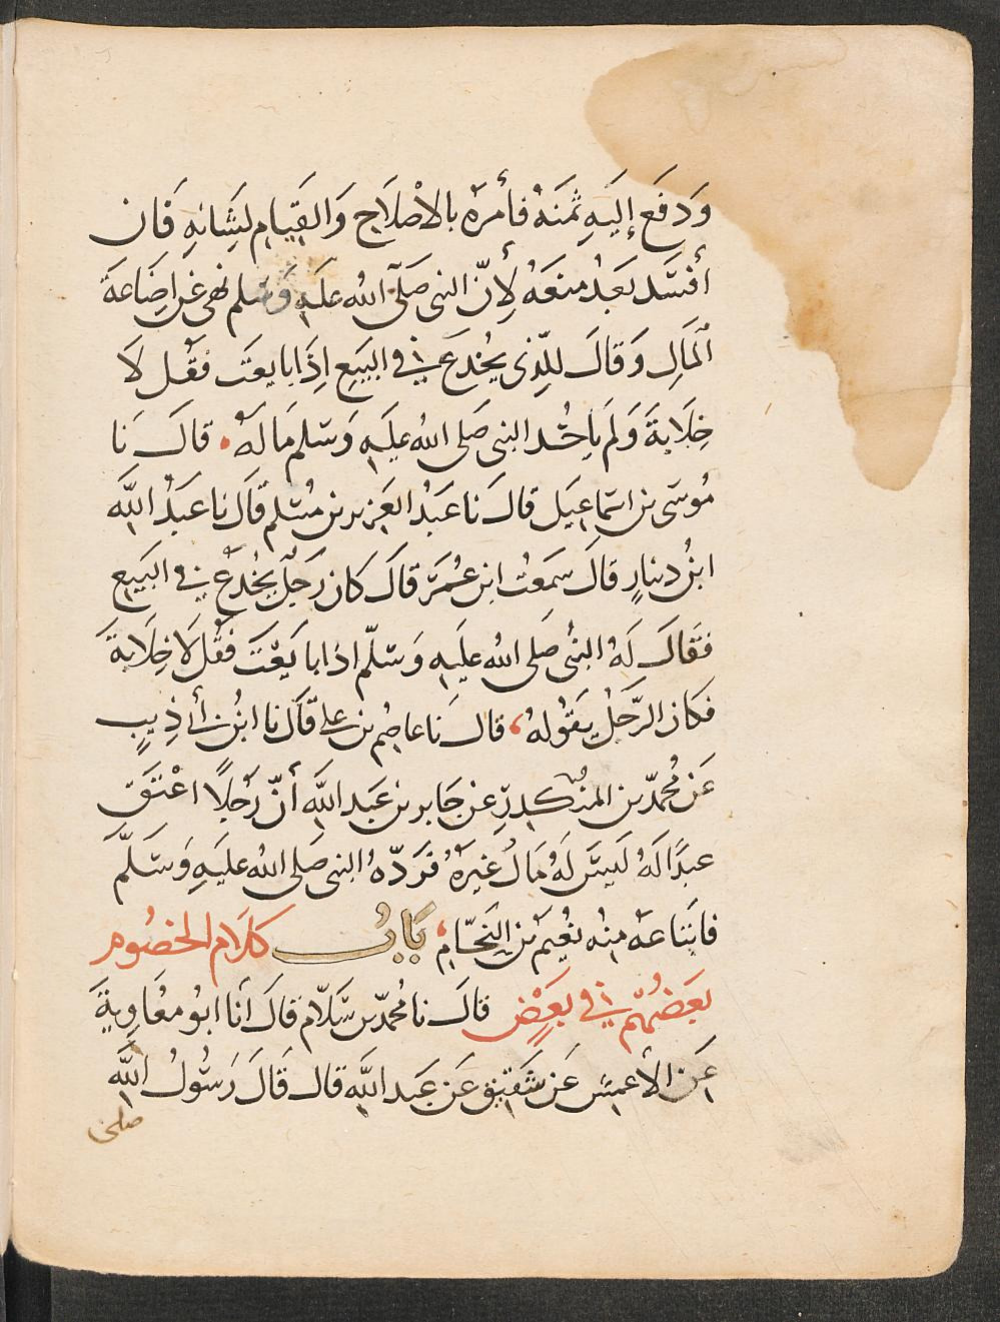 وَدَفَعَ إِلَيْهِ ثَمَنَهُ فأمره بالاْصْلَاحِ وَالقِيَامِ لِشَانِهِ فَان
أفسَد بَعْدُ منعَهُ لأِنّ النبى صَلّى اللهُ علَيهِ وَسَلم نهى عَن اِضَاعَة
المَالِ وَقالَ للِّذى يُخْدَع فى البَيع اِذَا بايَعتَ فقُل لَا
خِلَابَةَ وَلَم ياخُذ النبى صَلى اللهُ عليَهِ وَسَلم مَالَهُ . قالَ نَا
مُوسَى بن اسْمَاعِيل قالَ نا عَبْدُ العَزيز بن مُسْلم قَالَ نا عَبْدُ اللَّه
ابنُ دينارٍ قالَ سَمَعْتُ ابن عُمَرَ قالَ كان رَجلٌ يُخْدَعُ فى البَيع
فقَالَ لَهُ النبُى صَلى اللهُ عليَهِ وَسَلّم اذا بايَعْتَ فقُل لَا خِلَابَةَ
فكان الرّجَلُ يَقُولهُ ، قالَ نَا عاصِم بن على قَالَ نا ابْنُ أبى ذِيبٍ
عَن مُحمّد بن المنْكدِرِ عن جَابر بن عَبد اللَّه أنّ رَجُلًا اعْتَقَ
عبدًا لَهُ لَيسَ لَهُ مَالُ غيرهُ فَرَدّهُ النبى صَلى اللهُ عليَهِ وَسَلَّم
فابتاعهُ مِنْه نعُيم بْن النَحّامِ ، بَابُ كلَام الخصُوم
بعَضُهمْ فى بَعْضٍ قالَ نا مُحمّد بن سَلّام قَالَ أنا ابُو مُعَاوِيةَ
عَن الأعمش عَن شَقيق عَن عَبد اللَّه قال قَالَ رَسُولُ اللَّه
صلى